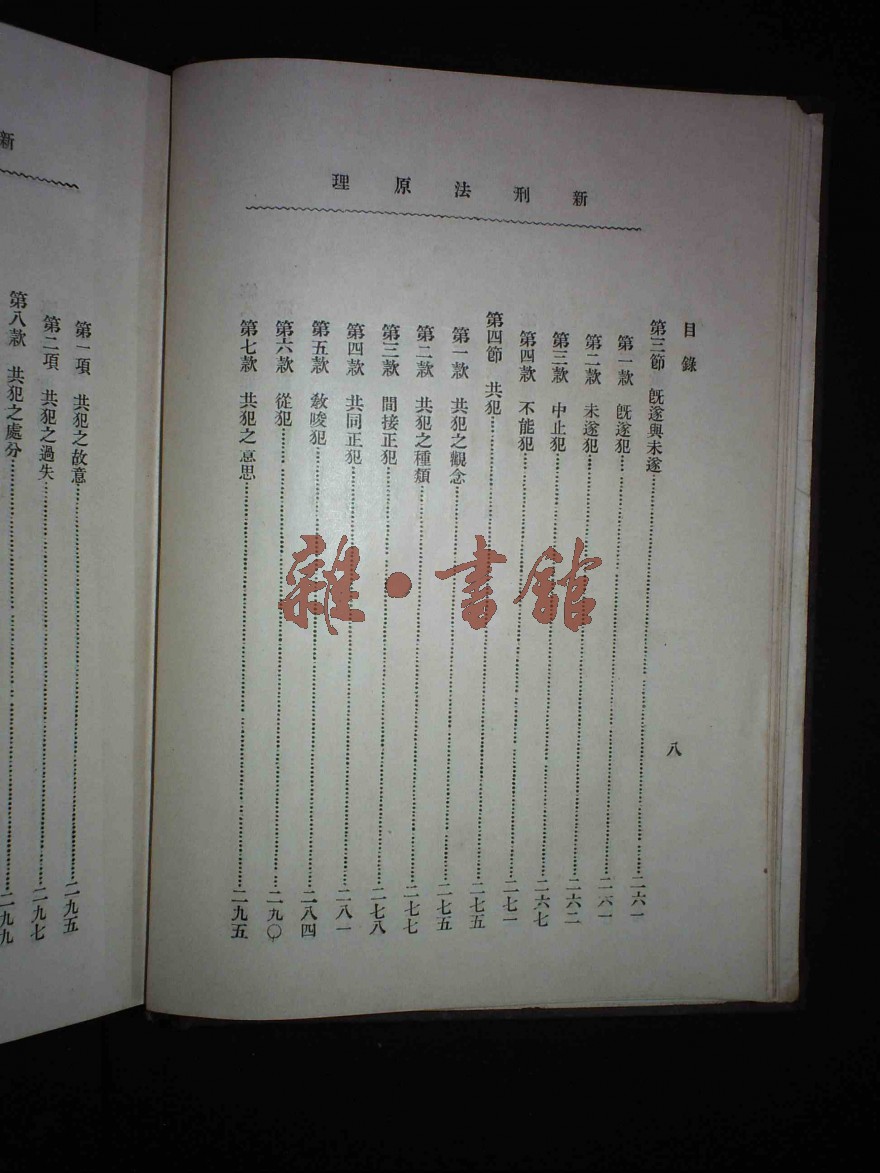 新刑法原理
目錄
第三節 既遂與未遂……二六一
第一款 既遂犯……二六一
第二款 未遂犯……二六二
第三款 中止犯……二六七
第四款 不能犯……二七一
第四節 共犯……二七五
第一款 共犯之觀念……二七五
第二款 共犯之種類……二七七
第三款 間接正犯……二七八
第四款 共同正犯……二八一
第五款 敎唆犯……二八四
第六款 從犯……二九〇
第七款 共犯之意思……二九五
八
新
第一項 共犯之故意……二九五
第二項 共犯之過失……二九七
第八款 共犯之處分……二九九
雜·書館